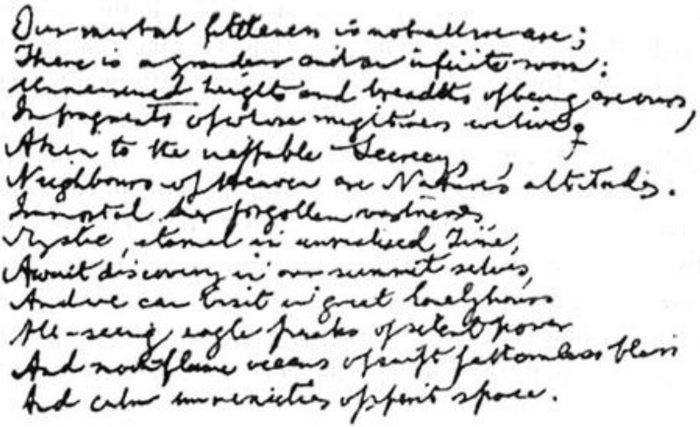 Our mortal littleness is not all we are;
There is a grandeur and an infinite room:
Unmeasured heights and breadths of being are ours,
In fragments of whose mightiness we live;
Akin to the ineffable Secrecy,
Neighbours of Heaven are Nature's altitudes.
Immortal forgotten vastnesses,
Mystic, eternal in unrealised Time,
Await discovery in our summit selves,
And we can visit in great lonely hours
All-seeing eagle peaks of silent power
And moon-flame oceans of swift fathomless bliss
And calm immensities of spirit space.